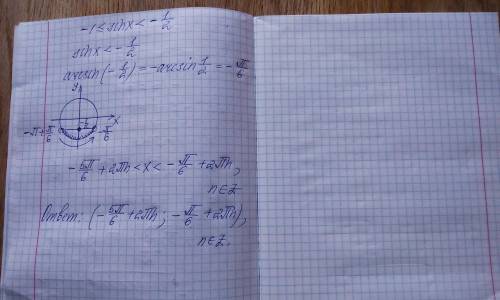 -1 ≤ sinx < -1/2
sinx < -1/2
arcsin(-1/2) = -arcsin 1/2 = -π/6
y
x
-π+π/6
-π/6
-5π/6 + 2πn < x < -π/6 + 2πn,
n∈Z
Ответ: (-5π/6 + 2πn; -π/6 + 2πn),
n∈Z.